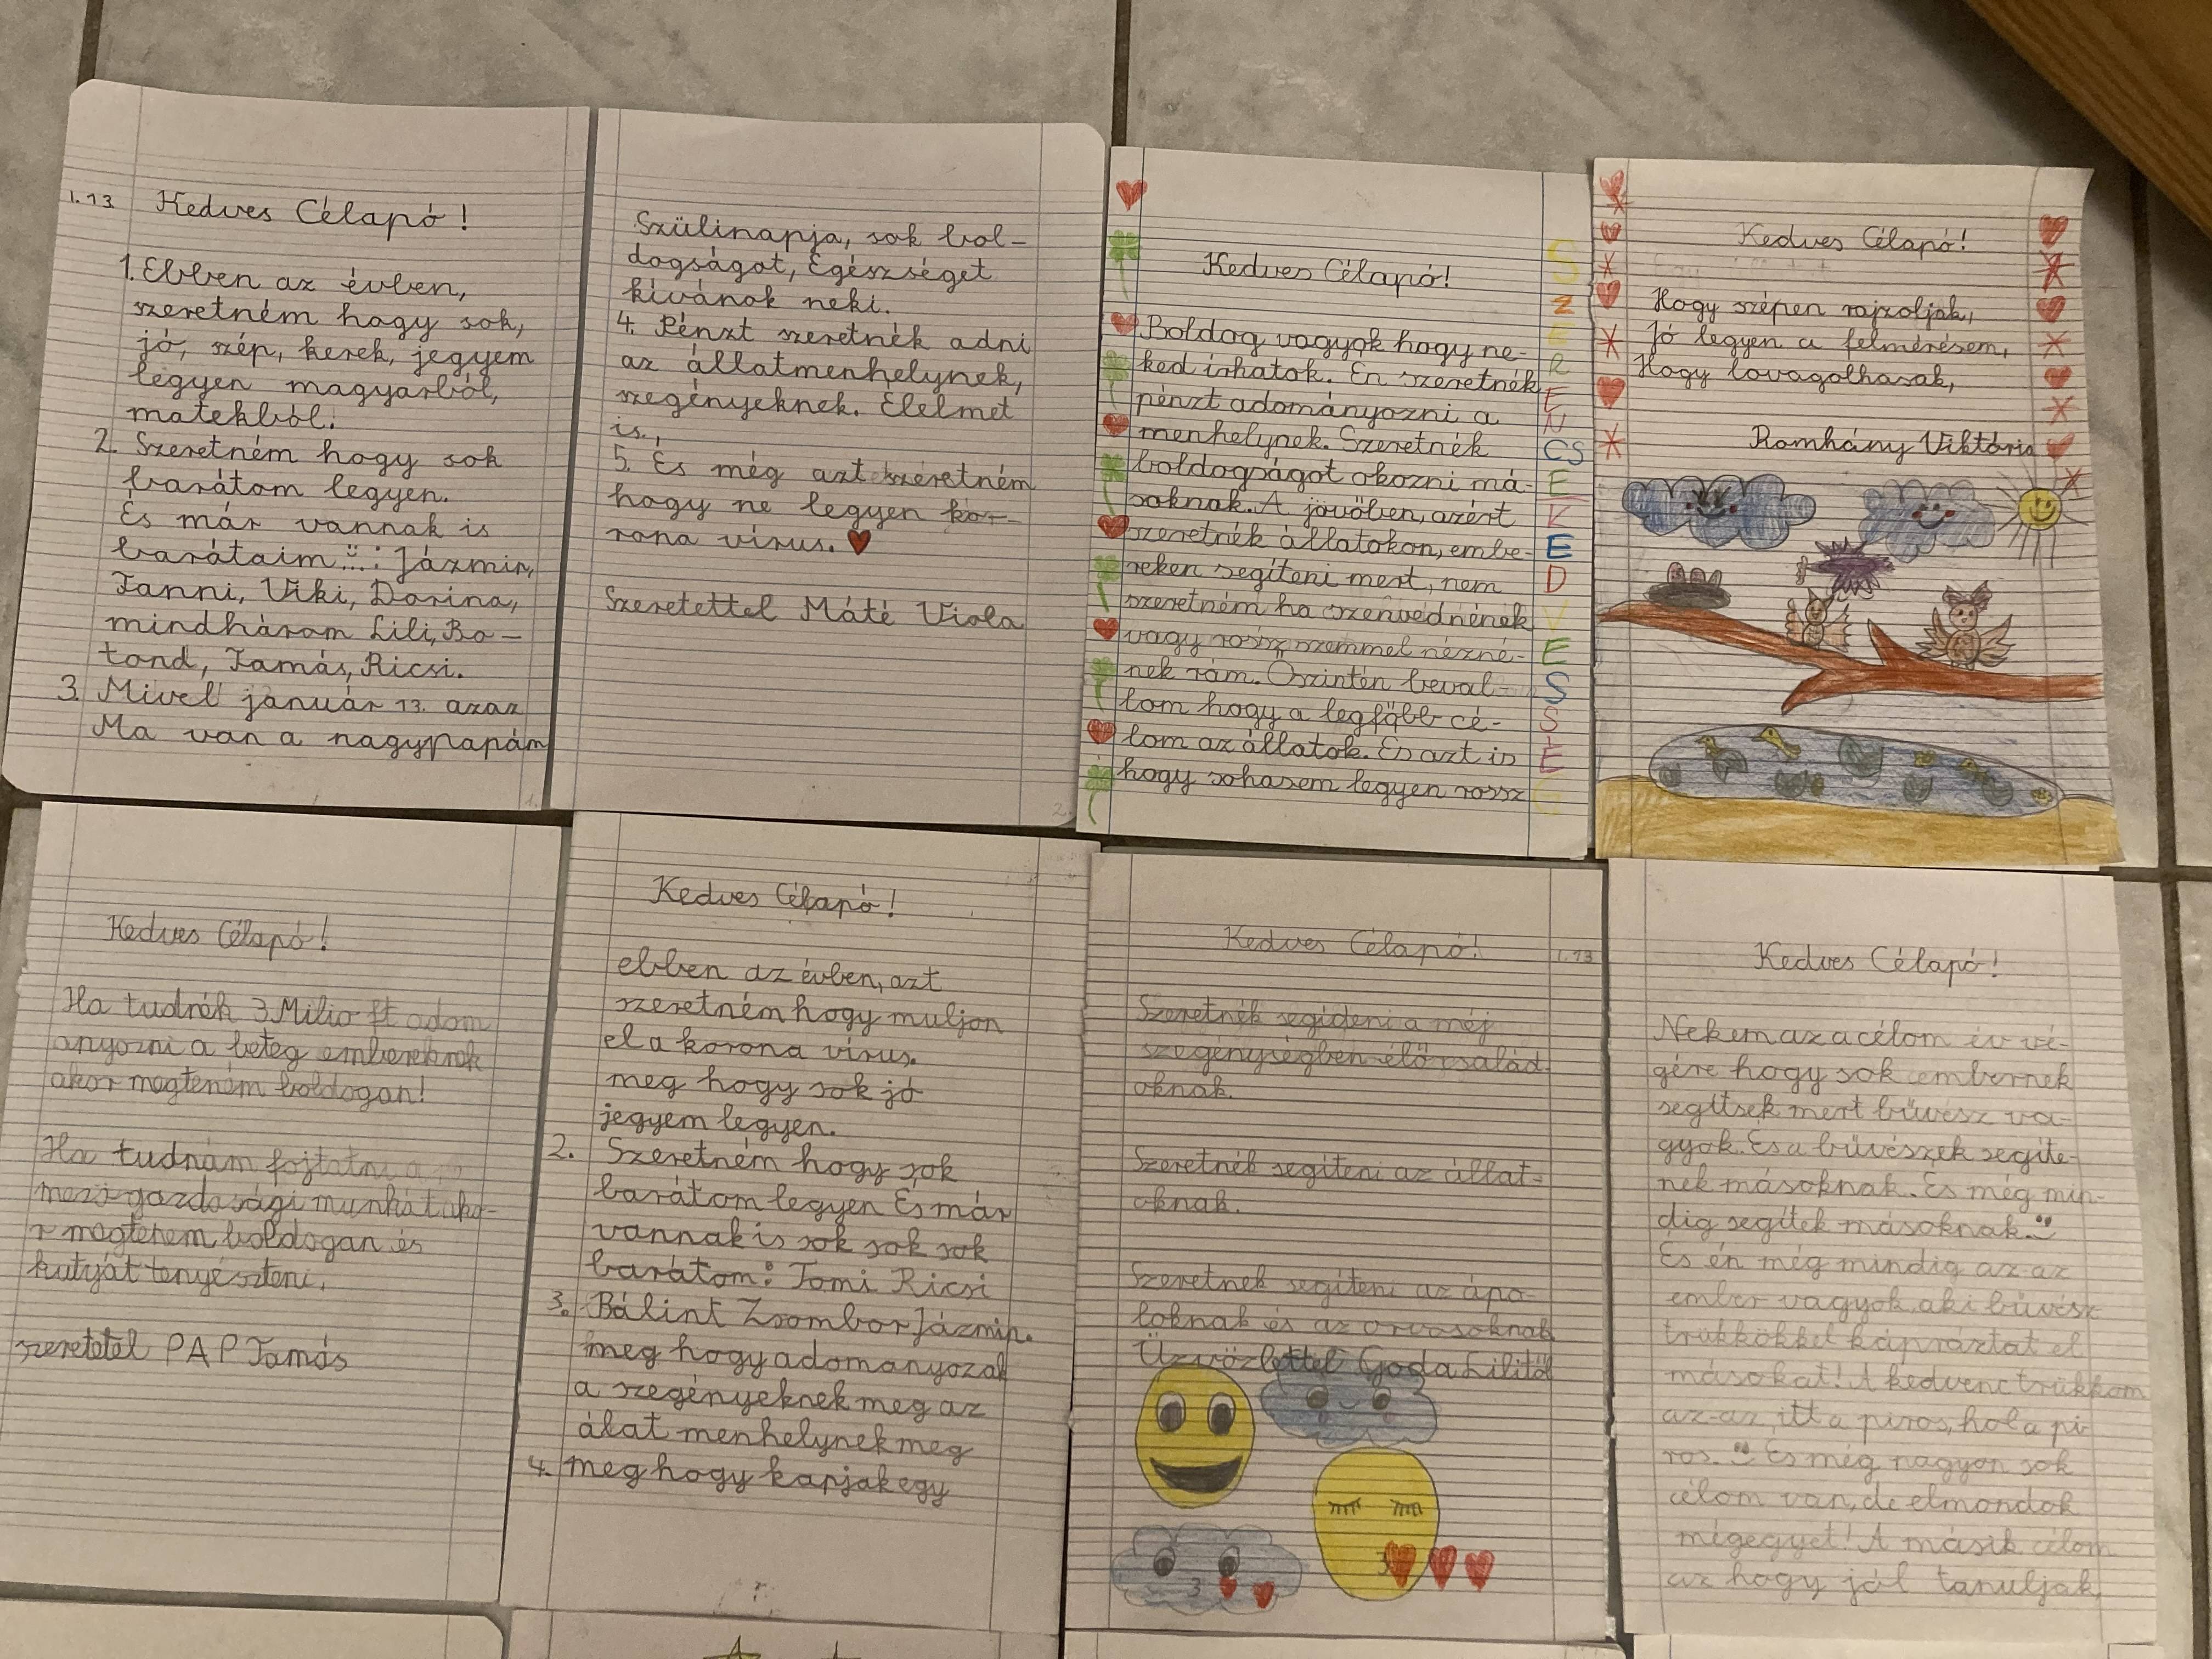 1.13
Kedves Célapó!
1. Ebben az évben,
szeretném hogy sok,
jó, szép, kerek, jegyem
legyen magyarból,
matekból.
2. Szeretném hogy sok
barátom legyen.
És már vannak is
barátaim: Jázmin,
Fanni, Viki, Dorina,
mindhárom Lili, Bo-
tond, Tamás, Ricsi.
3. Mivel január 13. azaz
Ma van a nagypapám
1.
Szülinapja, sok bol-
dogságot, Egészséget
kívánok neki.
4. Pénzt szeretnék adni
az állatmenhelynek,
szegényeknek. Élelmet
is.
5. És még azt szeretném
hogy ne legyen kor-
rona vírus.
Szeretettel Máté Viola
2.
Kedves Célapó!
Boldog vagyok hogy ne-
ked írhatok. Én szeretnék
pénzt adományozni a
menhelynek. Szeretnék
boldogságot okozni má-
soknak. A jövőben, azért
szeretnék állatokon, embe-
reken segíteni mert, nem
szeretném ha szenvednének
vagy rossz szemmel nézné-
nek rám. Őszintén beval-
lom hogy a legfőbb cé-
lom az állatok. És azt is
hogy sohasem legyen rossz
SZERENCSE
KEDVESSÉG
Kedves Célapó!
Hogy szépen rajzoljak,
Jó legyen a felmérésem,
Hogy lovagolhasak,
Romhány Viktória
Kedves Célapó!
Ha tudnék 3 Milio ft adom
anyozni a beteg embereknek
akor megteném boldogan!
Ha tudnám fojtatni a
mezőgazdasági munkát ako-
r megtenem boldogan és
kutyát tenyészteni.
szeretetel PAP Tamás
Kedves Célapó!
ebben az évben, azt
szeretném hogy muljon
el a korona vírus.
meg hogy sok jó
jegyem legyen.
2. Szeretném hogy sok
barátom legyen És már
vannak is sok sok sok
barátom: Tomi Ricsi
3. Bálint Zsombor Jázmin.
meg hogy adományozak
a szegényeknek meg az
álat menhelynek meg
4. meg hogy kapjak egy
Kedves Célapó!
1.13
Szeretnék segídeni a méj
szegénységben élő család-
oknak.
Szeretnék segíteni az állat-
oknak.
Szeretnek segíteni az ápo-
loknak és az orvosoknak
Üzvözlettel Goda Lilitől
Kedves Célapó!
Nekem az a célom év vé-
gére hogy sok embernek
segítsek mert bűvész va-
gyok. És a bűvészek segíte-
nek másoknak. És még min-
dig segítek másoknak.
És én még mindig az az
ember vagyok, aki bűvész
trükkökkel kápráztat el
másokat! A kedvenc trükköm
az-az, itt a piros, hol a pi-
ros. És még nagyon sok
célom van, de elmondok
mégegyet! A másik célom
az hogy jól tanuljak,